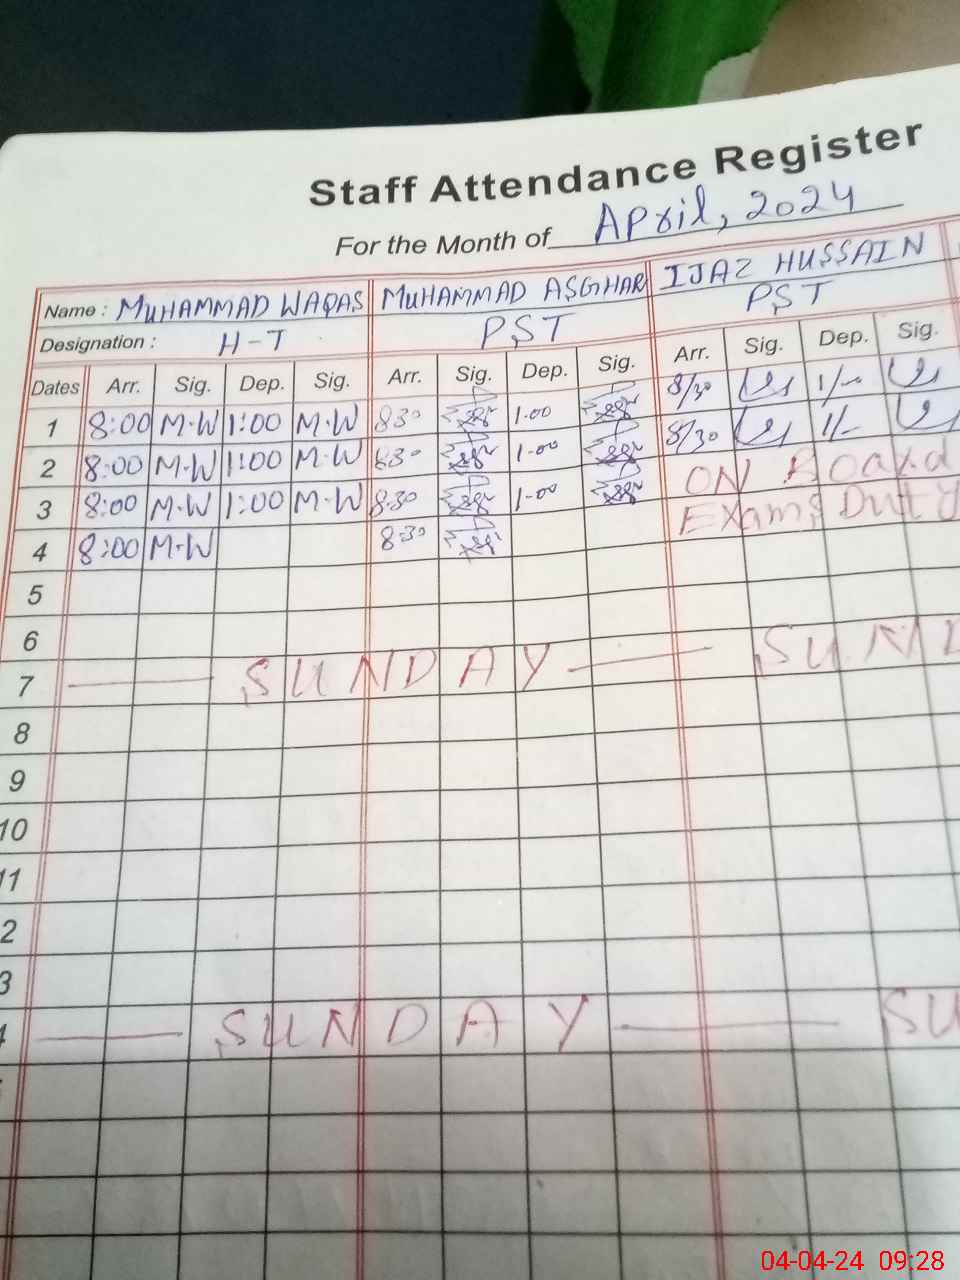 Staff Attendance Register
For the Month of April, 2024
Name : MUHAMMAD WAQAS MUHAMMAD ASGHAR IJAZ HUSSAIN
Designation : H-T PST PST
Dates Arr. Sig. Dep. Sig. Arr. Sig. Dep. Sig. Arr. Sig. Dep. Sig.
1 8:00 M.W 1:00 M.W 8.30 1.00 8/30 1/-
2 8:00 M.W 1:00 M.W 8.30 1.00 8/30 1/-
3 8:00 M.W 1:00 M.W 8.30 1.00 ON Board
4 8:00 M.W 8.30 Exams Duty
5
6
7 SUNDAY SUND
8
9
10
11
2
3
4 SUNDAY SU
04-04-24 09:28